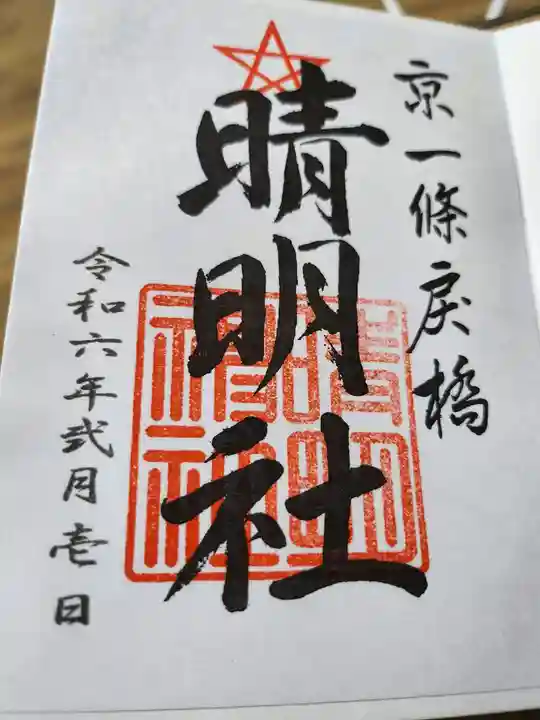 京一條戻橋
晴明社
晴明
神社
令和六年弐月壱日